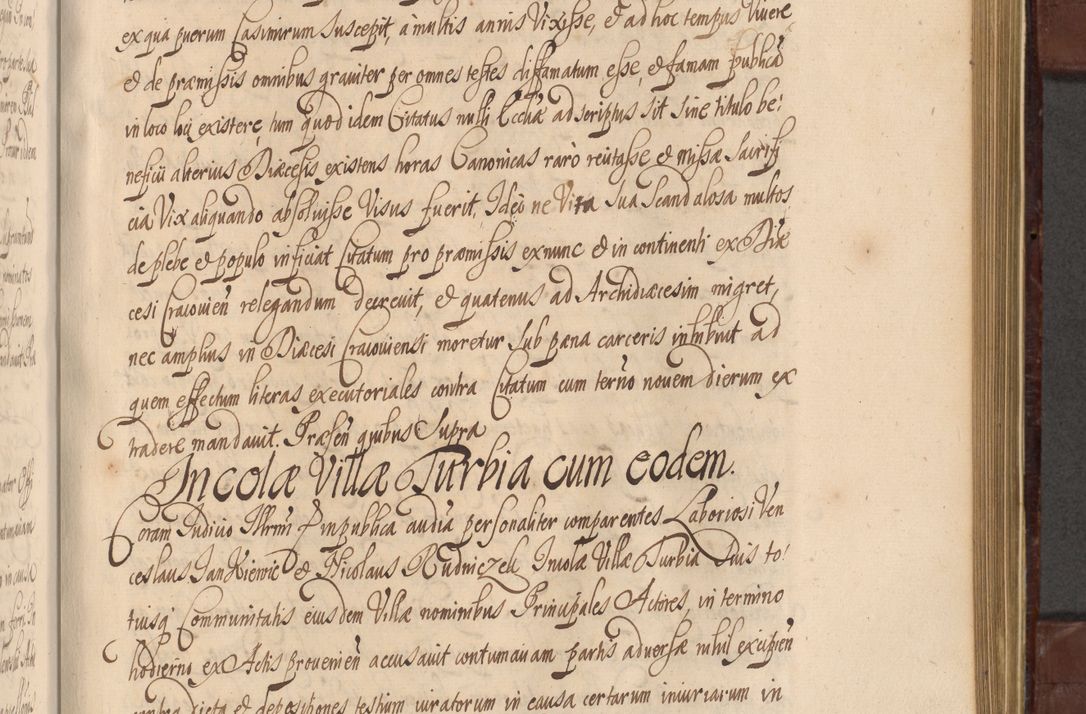 ex qua puerum Casimirum suscepit, à multis annis Vixisse, et ad hoc tempus Vivere
et de præmissis omnibus graviter per omnes testes diffamatum esse, et famam publicã
in loco loci existere, tum quod idem Citatus nulli Eccliæ adscriptus sit sine titulo be:
neficii alterius Diæcesis existens horas Canonicas rarò recitasse et Missæ Sacrifi
cia Vix aliquando absolvisse Visus fuerit, Ideo ne Vita sua scandalosa multos
de plebe et populo inficiat Citatum pro præmissis exnunc et in continenti ex Diæ
cesi Cracovien̄ relegandum decrevit, et quatenus ad Archidiæcesim migret,
nec amplius in Diæcesi Cracoviensi moretur sub pæna carceris inhibuit ad
quem effectum literas executoriales contra Citatum cum ter̃no novem dierum ex
tradere mandavit. Præsen̄ quibus supra
Incolæ Villæ Turbia cum eodem.
Coram Judicio Illr̃mi P in publica audiã personaliter comparentes Laboriosi Ven
ceslaus et Nicolaus Rudniczek Incolæ Villæ Turbia suis to:
tiusq̃ Communitatis eiusdem Villæ nominibus Principales Actores, in termino
hodierno ex Actis provenien̄ accusavit contumaciam partis adversæ nihil excipien̄
contra dicta et depositiones testium iuratorum in causa certarum iniuriarum in